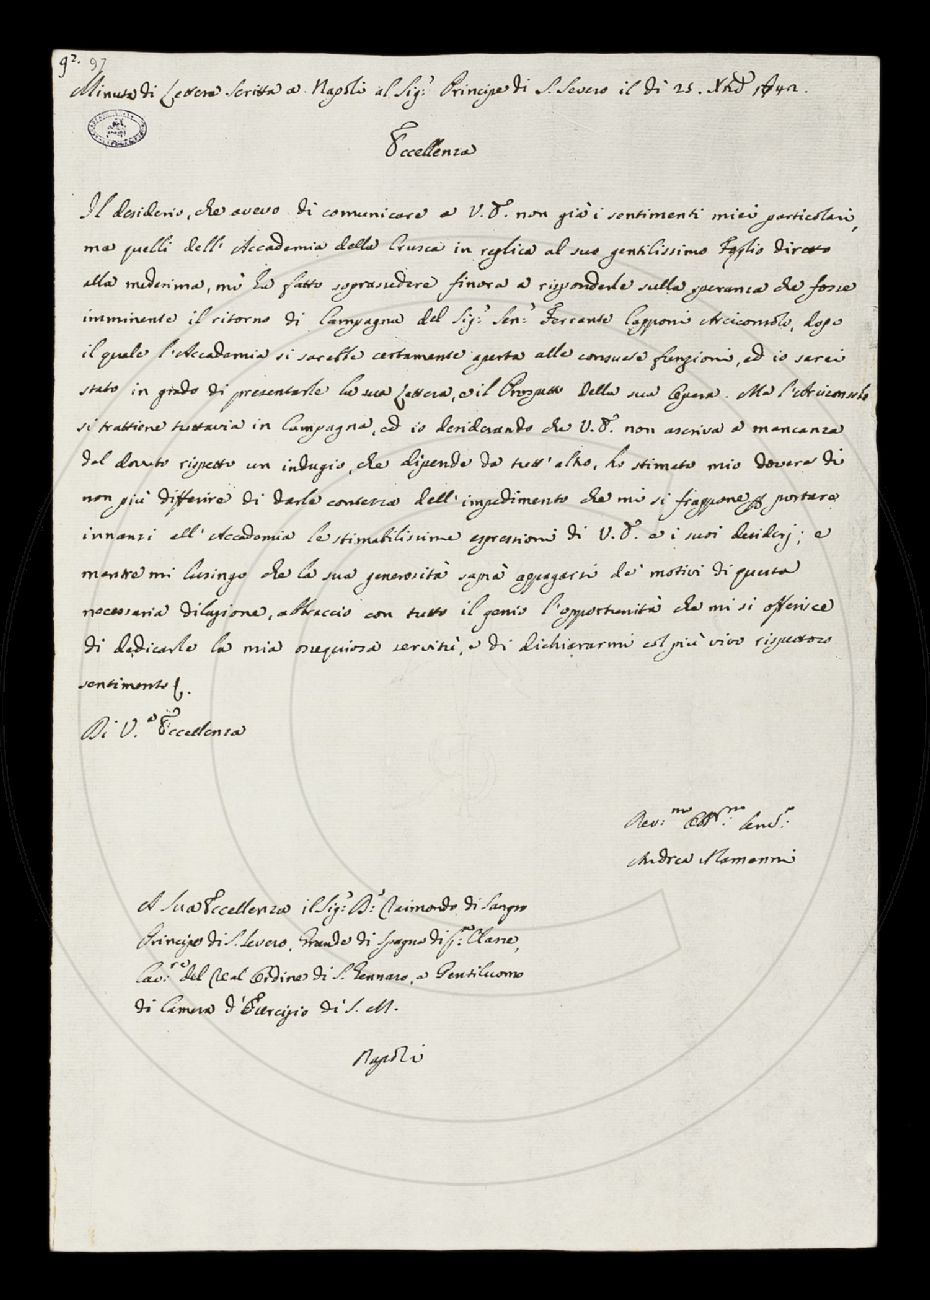 9². 97
Minuta di Lettera Scritta a Napoli al Sig.ʳ Principe di S. Severo il di 25. Xbre 1742.
Eccellenza
Il desiderio, che avevo di comunicare a V. E. non già i sentimenti miei particolari,
ma quelli dell' Accademia della Crusca in replica al suo gentilissimo Foglio diretto
alla medesima, mi ha fatto soprassedere finora a risponderle sulla speranza che fosse
imminente il ritorno di Campagna del Sig.ʳ Sen.ʳ Ferrante Capponi Arciconsolo, dopo
il quale l'Accademia si sarebbe certamente aperta alle consuete funzioni, ed io sarei
stato in grado di presentarle la sua Lettera, e il Prospetto della sua Opera. Ma l'Arciconsolo
si trattiene tuttavia in Campagna, ed io desiderando che V. E. non ascriva a mancanza
del dovuto rispetto un indugio, che dipende da tutt' altro, ho stimato mio dovere di
non più differire di darle contezza dell' impedimento che mi si frappone p portare
innanzi all' Accademia le stimabilissime espressioni di V. E. e i suoi desiderj; e
mentre mi lusingo che la sua generosità saprà appagarsi de' motivi di questa
necessaria dilazione, abbraccio con tutto il genio l'opportunità che mi si offerisce
di dedicarle la mia ossequiosa servitù, e di dichiararmi col più vivo rispettoso
sentimento
Di V.ᵃ Eccellenza
Dev.ᵐᵒ Obb.ᵐᵒ Serv.ʳ
Andrea Alamanni
A Sua Eccellenza il Sig.ʳ D.ⁿ Raimondo di Sangro
Principe di S. Severo, Grande di Spagna di p.ᵐᵃ Classe,
Cav.ʳᵉ del Real Ordine di S. Gennaro, e Gentiluomo
di Camera d'Esercizio di S. M.
Napoli